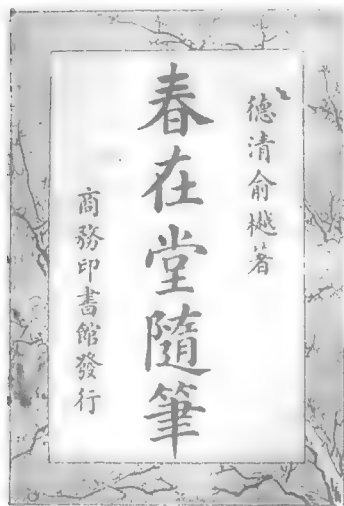 德清俞樾著
春在堂隨筆
商務印書館發行